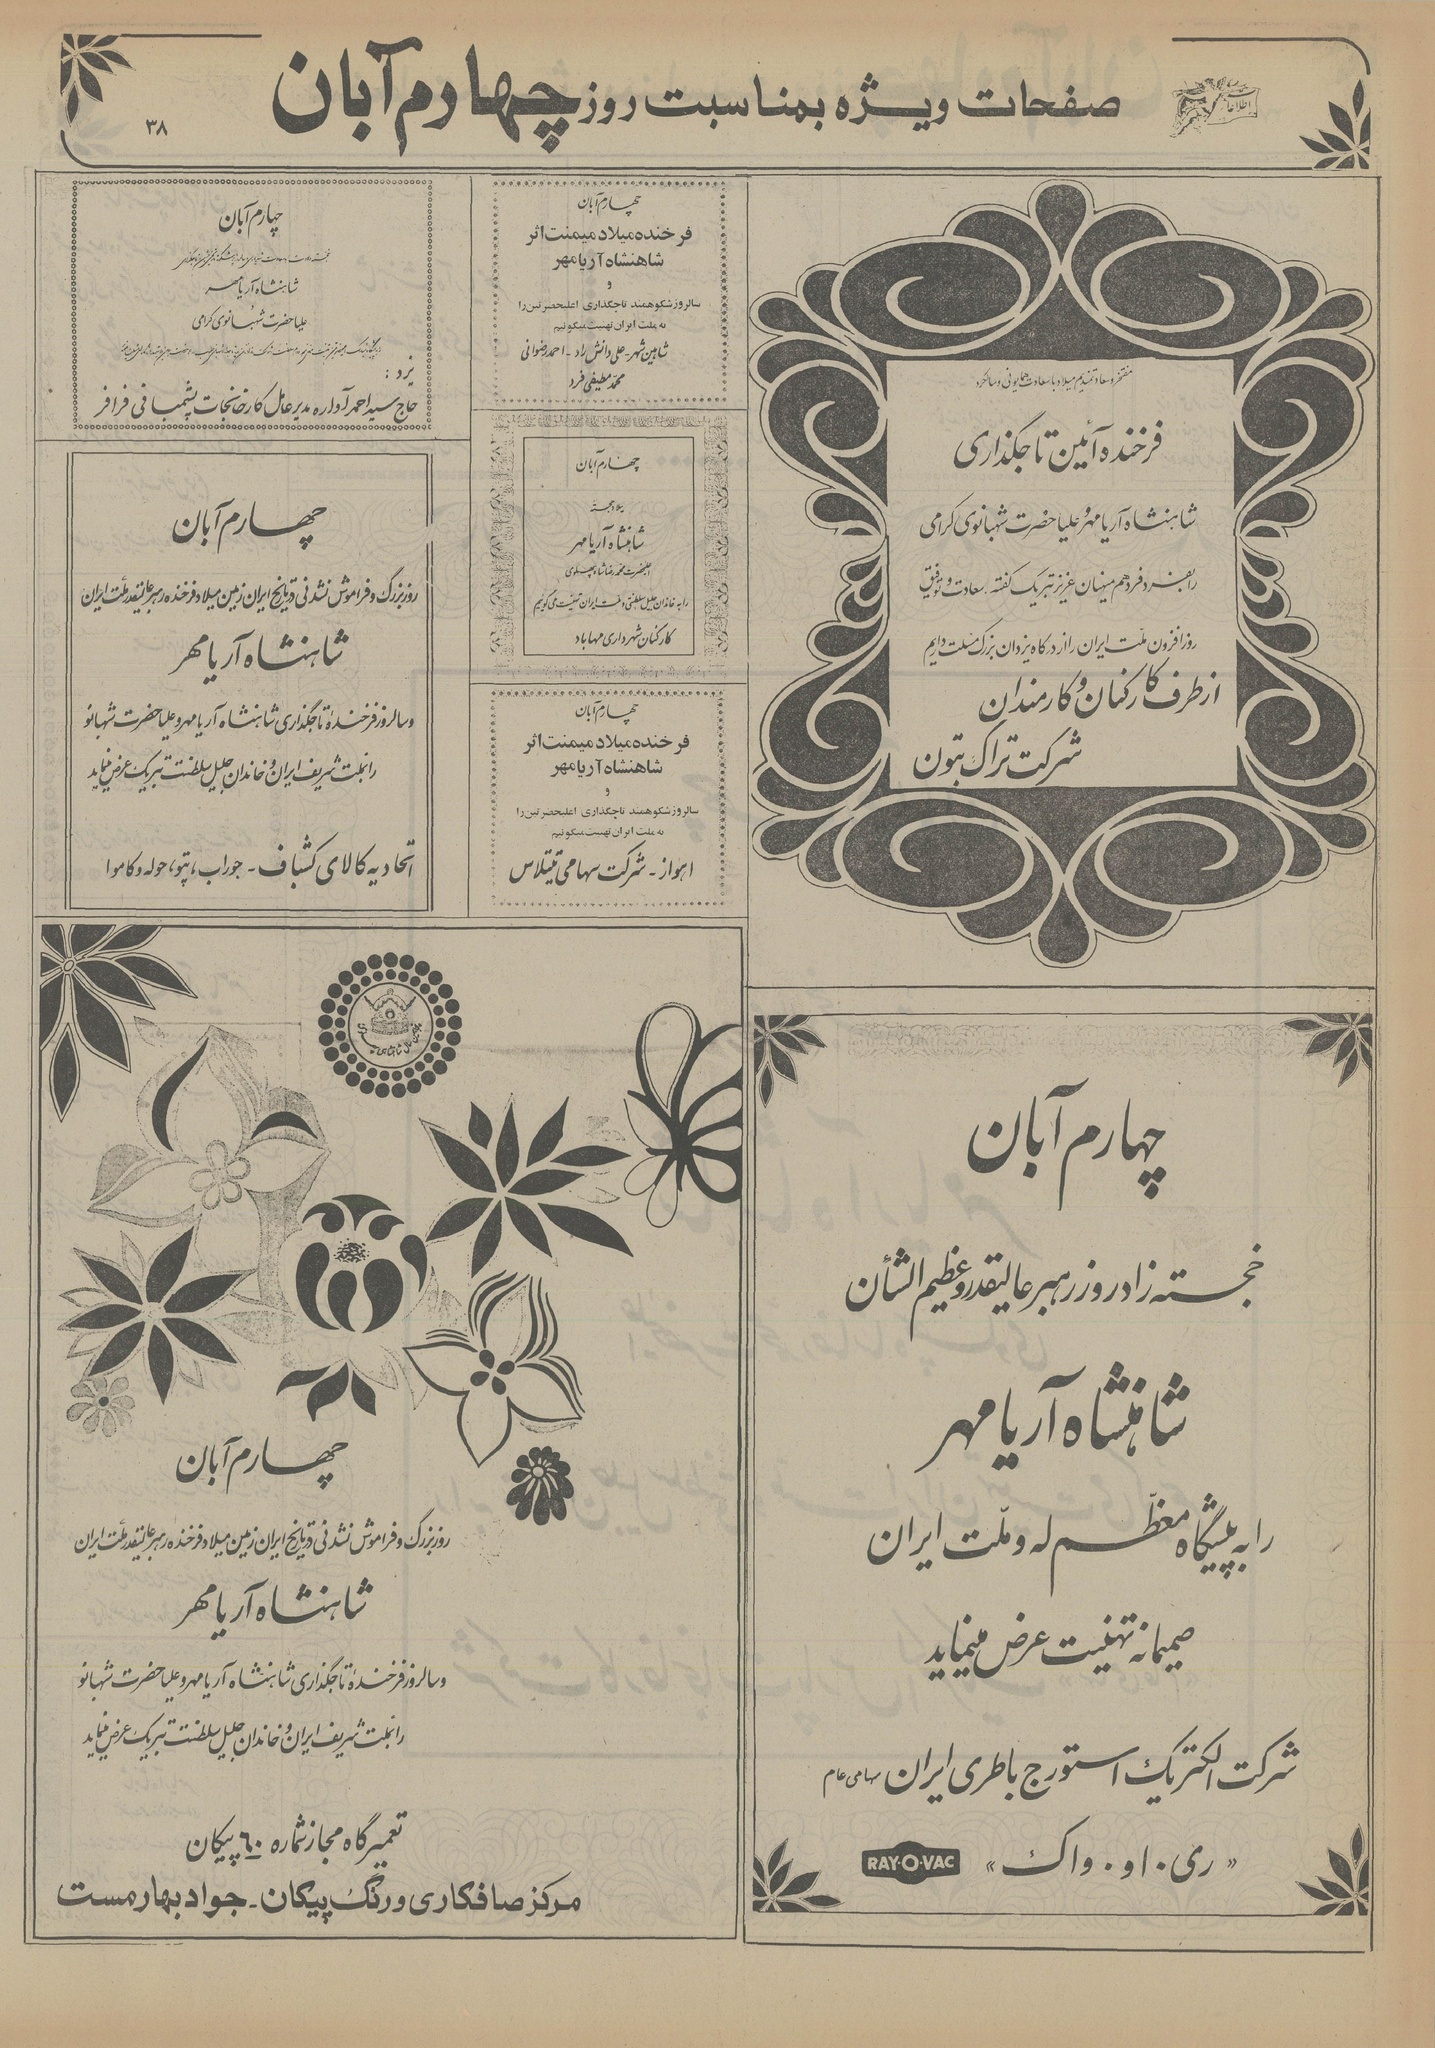 صفحات ویژه بمناسبت روز چهارم آبان
اطلاعات
۳۸
مفتخر و سعادتمندیم میلاد با سعادت همایونی و سالگرد
فرخنده آئین تاجگذاری
شاهنشاه آریامهر و علیاحضرت شهبانوی گرامی
را بفرد فرد هم میهنان عزیز تبریک گفته، سعادت و توفیق
روزافزون ملت ایران را از درگاه یزدان بزرگ مسئلت داریم
از طرف کارکنان و کارمندان
شرکت تراک بتون
چهارم آبان
فرخنده میلاد میمنت اثر
شاهنشاه آریامهر
و
سالروز شکوهمند تاجگذاری اعلیحضرتین را
به ملت ایران تهنیت میگوئیم
شاهین شهر - علی دانش راد - احمد رضوانی
محمد مطیفی فرد
چهارم آبان
میلاد خجسته
شاهنشاه آریامهر
اعلیحضرت محمد رضا شاه پهلوی
را به خاندان جلیل سلطنتی و ملت ایران تهنیت می گوئیم
کارکنان شهرداری مهاباد
چهارم آبان
فرخنده میلاد میمنت اثر
شاهنشاه آریامهر
و
سالروز شکوهمند تاجگذاری اعلیحضرتین را
به ملت ایران تهنیت میگوئیم
اهواز - شرکت سهامی تیتلاس
چهارم آبان
شاهنشاه آریامهر
علیاحضرت شهبانوی گرامی
یزد :
حاج سید احمد آواره مدیر عامل کارخانجات پشمبافی فرافر
چهارم آبان
روز بزرگ و فراموش نشدنی در تاریخ ایران زمین میلاد فرخنده رهبر عالیقدر ملت ایران
شاهنشاه آریامهر
و سالروز فرخنده تاجگذاری شاهنشاه آریامهر و علیاحضرت شهبانو
را بملت شریف ایران و خاندان جلیل سلطنت تبریک عرض مینماید
اتحادیه کالای کشباف - جوراب، پتو، حوله و کاموا
چهارم آبان
خجسته زادروز رهبر عالیقدر و عظیم الشأن
شاهنشاه آریامهر
را به پیشگاه معظم له و ملت ایران
صمیمانه تهنیت عرض مینماید
شرکت الکتریک استورج باطری ایران سهامی عام
« ری . او . واک » RAY-O-VAC
چهارم آبان
روز بزرگ و فراموش نشدنی در تاریخ ایران زمین میلاد فرخنده رهبر عالیقدر ملت ایران
شاهنشاه آریامهر
و سالروز فرخنده تاجگذاری شاهنشاه آریامهر و علیاحضرت شهبانو
را بملت شریف ایران و خاندان جلیل سلطنت تبریک عرض مینماید
تعمیرگاه مجاز شماره ۶۰ پیکان
مرکز صافکاری و رنگ پیکان - جواد بهارمست